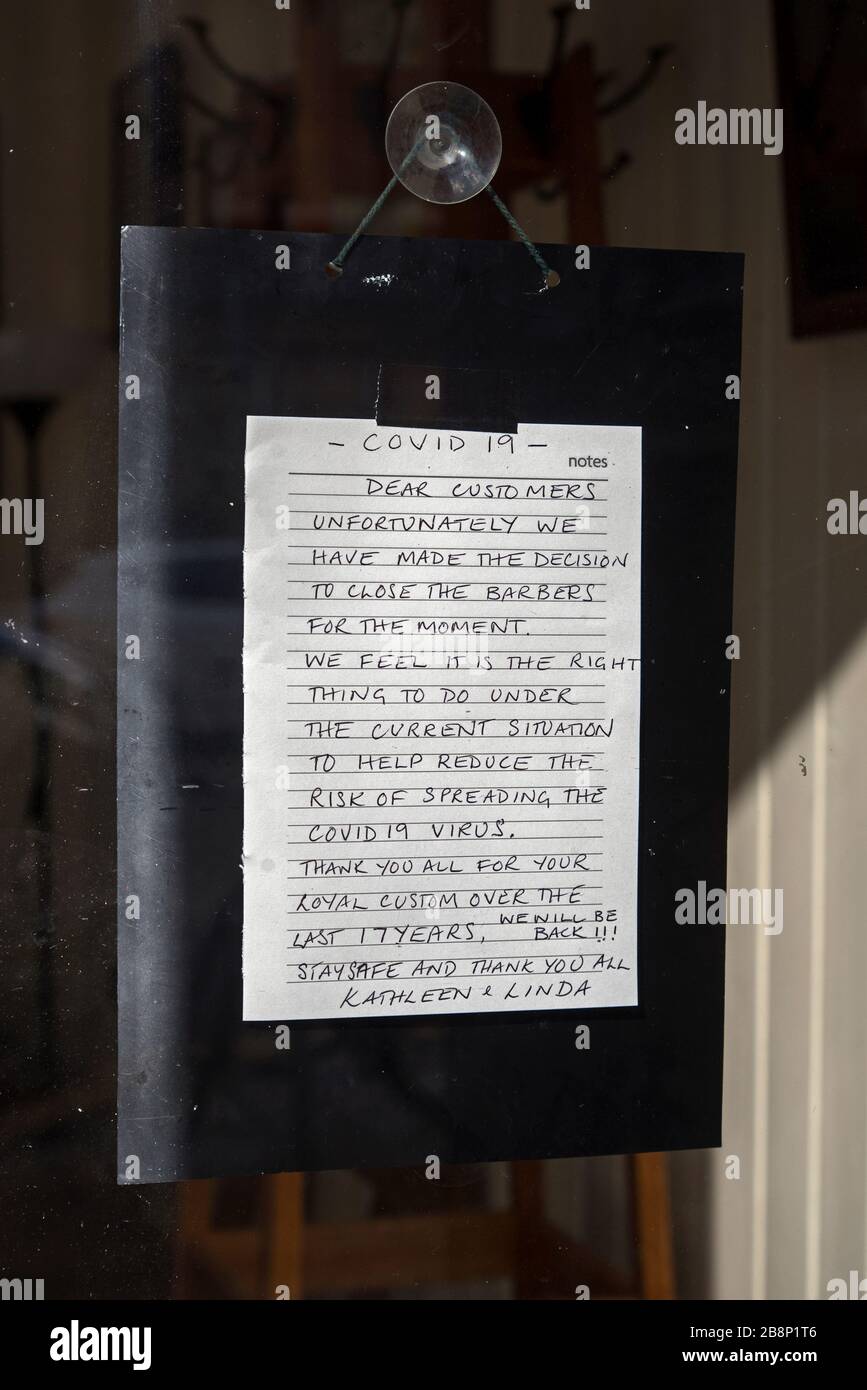 - COVID 19 -
notes
DEAR CUSTOMERS
UNFORTUNATELY WE
HAVE MADE THE DECISION
TO CLOSE THE BARBERS
FOR THE MOMENT.
WE FEEL IT IS THE RIGHT
THING TO DO UNDER
THE CURRENT SITUATION
TO HELP REDUCE THE
RISK OF SPREADING THE
COVID 19 VIRUS.
THANK YOU ALL FOR YOUR
LOYAL CUSTOM OVER THE
LAST 17 YEARS, WE WILL BE
BACK !!!
STAY SAFE AND THANK YOU ALL
KATHLEEN & LINDA
alamy
alamy
alamy
Image ID: 2B8P1T6
www.alamy.com